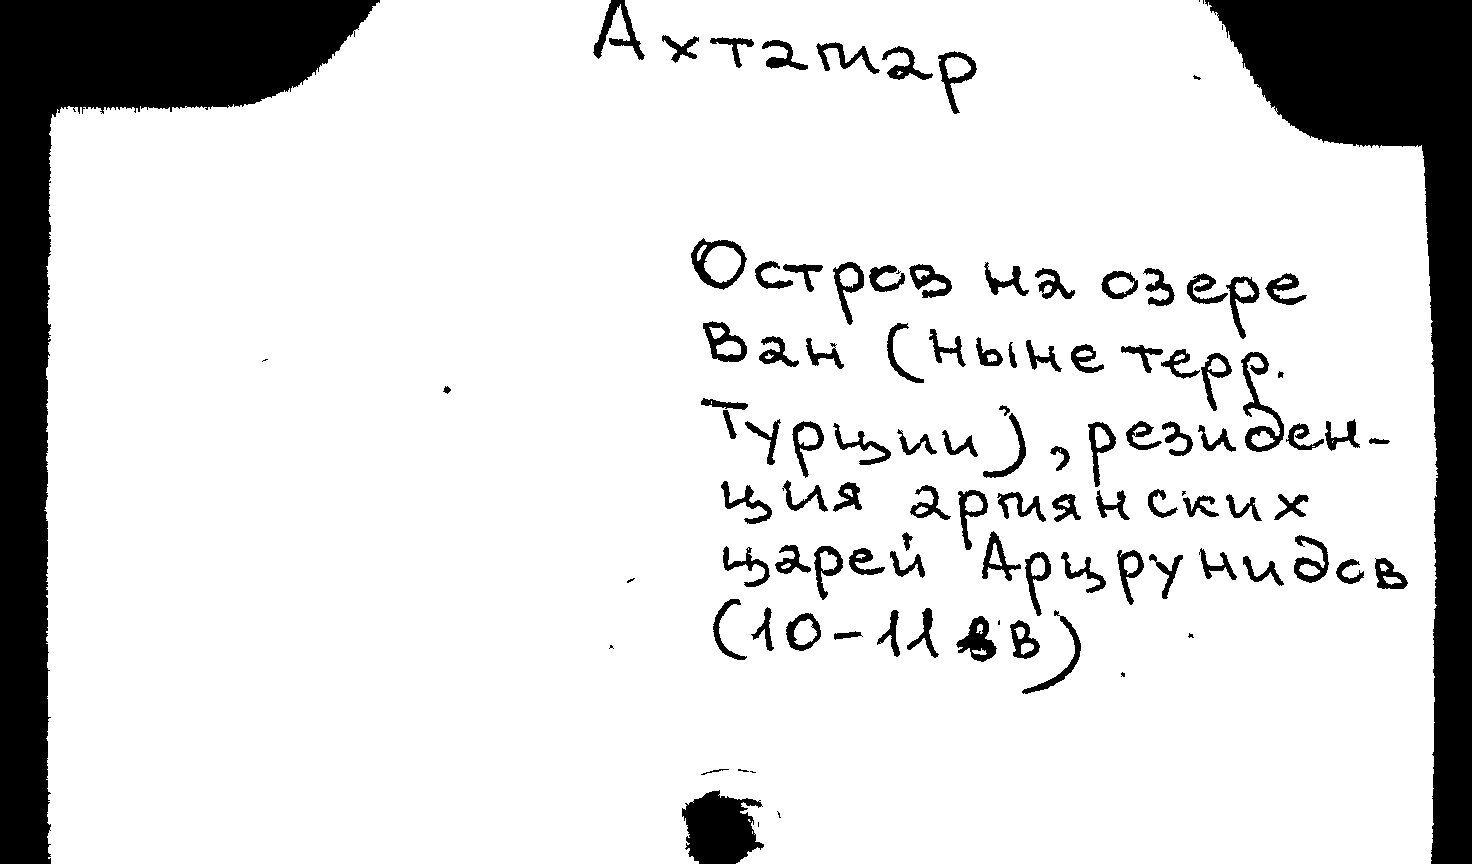 Ахтамар
Остров на озере
Ван (ныне терр.
Турции), резиден-
ция армянских
царей Арцрунидов
(10-11 вв)